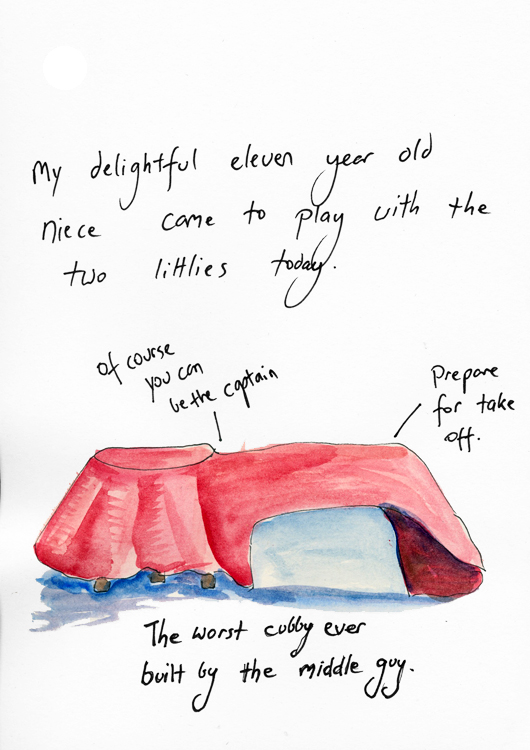 My delightful eleven year old
niece came to play with the
two littlies today.
of course
you can
be the captain
Prepare
for take
off.
The worst cubby ever
built by the middle guy.